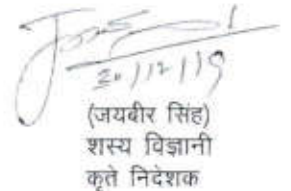 20/12/19
(जयबीर सिंह)
शस्य विज्ञानी
कृते निदेशक